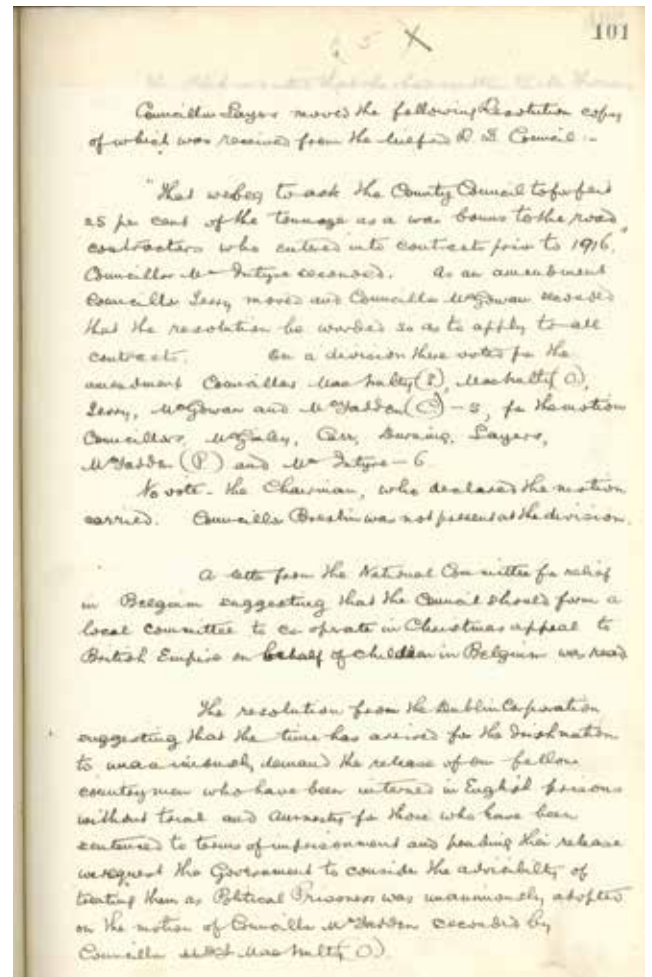 101
Councillor Sayers moved the following Resolution copy
of which was received from the Milford R. D. Council :-
"That we beg to ask the County Council to forfeit
25 per cent of the tonnage as a war bonus to the road
contractors who entered into contracts prior to 1916."
Councillor McIntyre seconded. As an amendment
Councillor moved and Councillor McGowan seconded
that the resolution be worded so as to apply to all
contracts. On a division there voted for the
amendment Councillors MacNulty (P), MacNulty (O),
McGowan and McFadden (C) - 5, for the motion
Councillors, McGinley, Carr, Sayers,
McFadden (P) and McIntyre - 6
No vote - the Chairman, who declared the motion
carried. Councillor Breslin was not present at the division.
A letter from the National Committee for relief
in Belgium suggesting that the Council should form a
local committee to co-operate in Christmas appeal to
British Empire on behalf of children in Belgium was read
The resolution from the Dublin Corporation
suggesting that the time has arrived for the Irish nation
to unanimously demand the release of our fellow
countrymen who have been interned in English prisons
without trial and Amnesty for those who have been
sentenced to terms of imprisonment and pending their release
we request the Government to consider the advisability of
treating them as Political Prisoners was unanimously adopted
on the motion of Councillor McFadden seconded by
Councillor MacNulty (O)